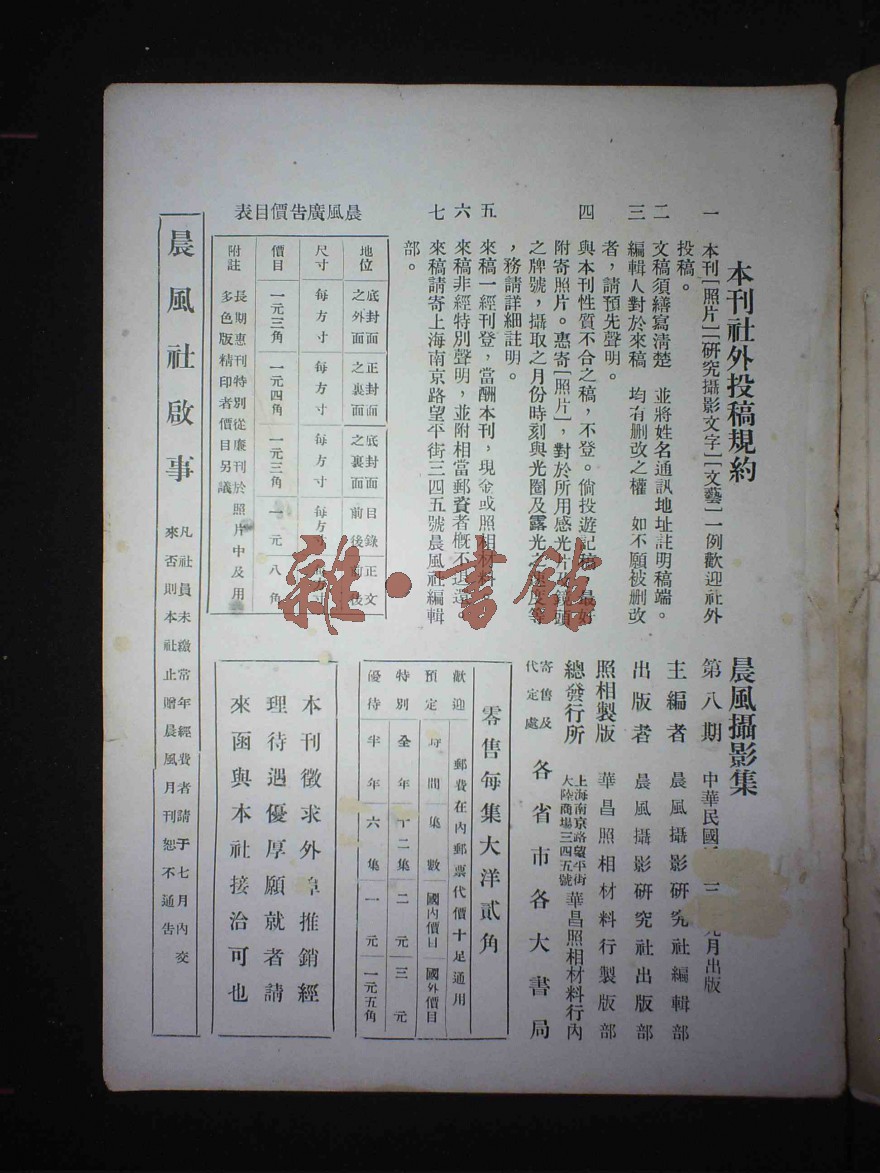 本刊社外投稿規約
一 本刊［照片］［研究攝影文字］［文藝］一例歡迎社外
投稿。
二 文稿須繕寫清楚 並將姓名通訊地址註明稿端。
三 編輯人對於來稿 均有删改之權 如不願被删改
者，請預先聲明。
四 與本刊性質不合之稿，不登。倘投遊記稿 最好
附寄照片。惠寄［照片］，對於所用感光片及鏡頭
之牌號，攝取之月份時刻與光圈及露光之速度等
，務請詳細註明。
五 來稿一經刊登，當酬本刊，現金或照相材料
六 來稿非經特別聲明，並附相當郵資者概不退還。
七 來稿請寄上海南京路望平街三四五號晨風社編輯
部。
晨風廣告價目表
地位 底封面之外面 正封面之裏面 底封面之裏面 目錄前後 正文前後
尺寸 每方寸 每方寸 每方寸 每方寸
價目 一元三角 一元四角 一元三角 一元 八角
附註 長期惠刊特別從廉刊於照片中及用
多色版精印者價目另議
晨風社啟事
凡社員未繳常年經費者請于七月內交
來否則本社止贈晨風月刊恕不通告
晨風攝影集
第八期 中華民國 三 月出版
主編者 晨風攝影研究社編輯部
出版者 晨風攝影研究社出版部
照相製版 華昌照相材料行製版部
總發行所 上海南京路望平街大陸商場三四五號 華昌照相材料行內
寄售及代定處 各省市各大書局
零售每集大洋貳角
郵費在內郵票代價十足通用
歡迎預定特別優待
時間 集數 國內價目 國外價目
全年 十二集 二元 三元
半年 六集 一元 一元五角
本刊徵求外埠推銷經
理待遇優厚願就者請
來函與本社接洽可也
雜·書館